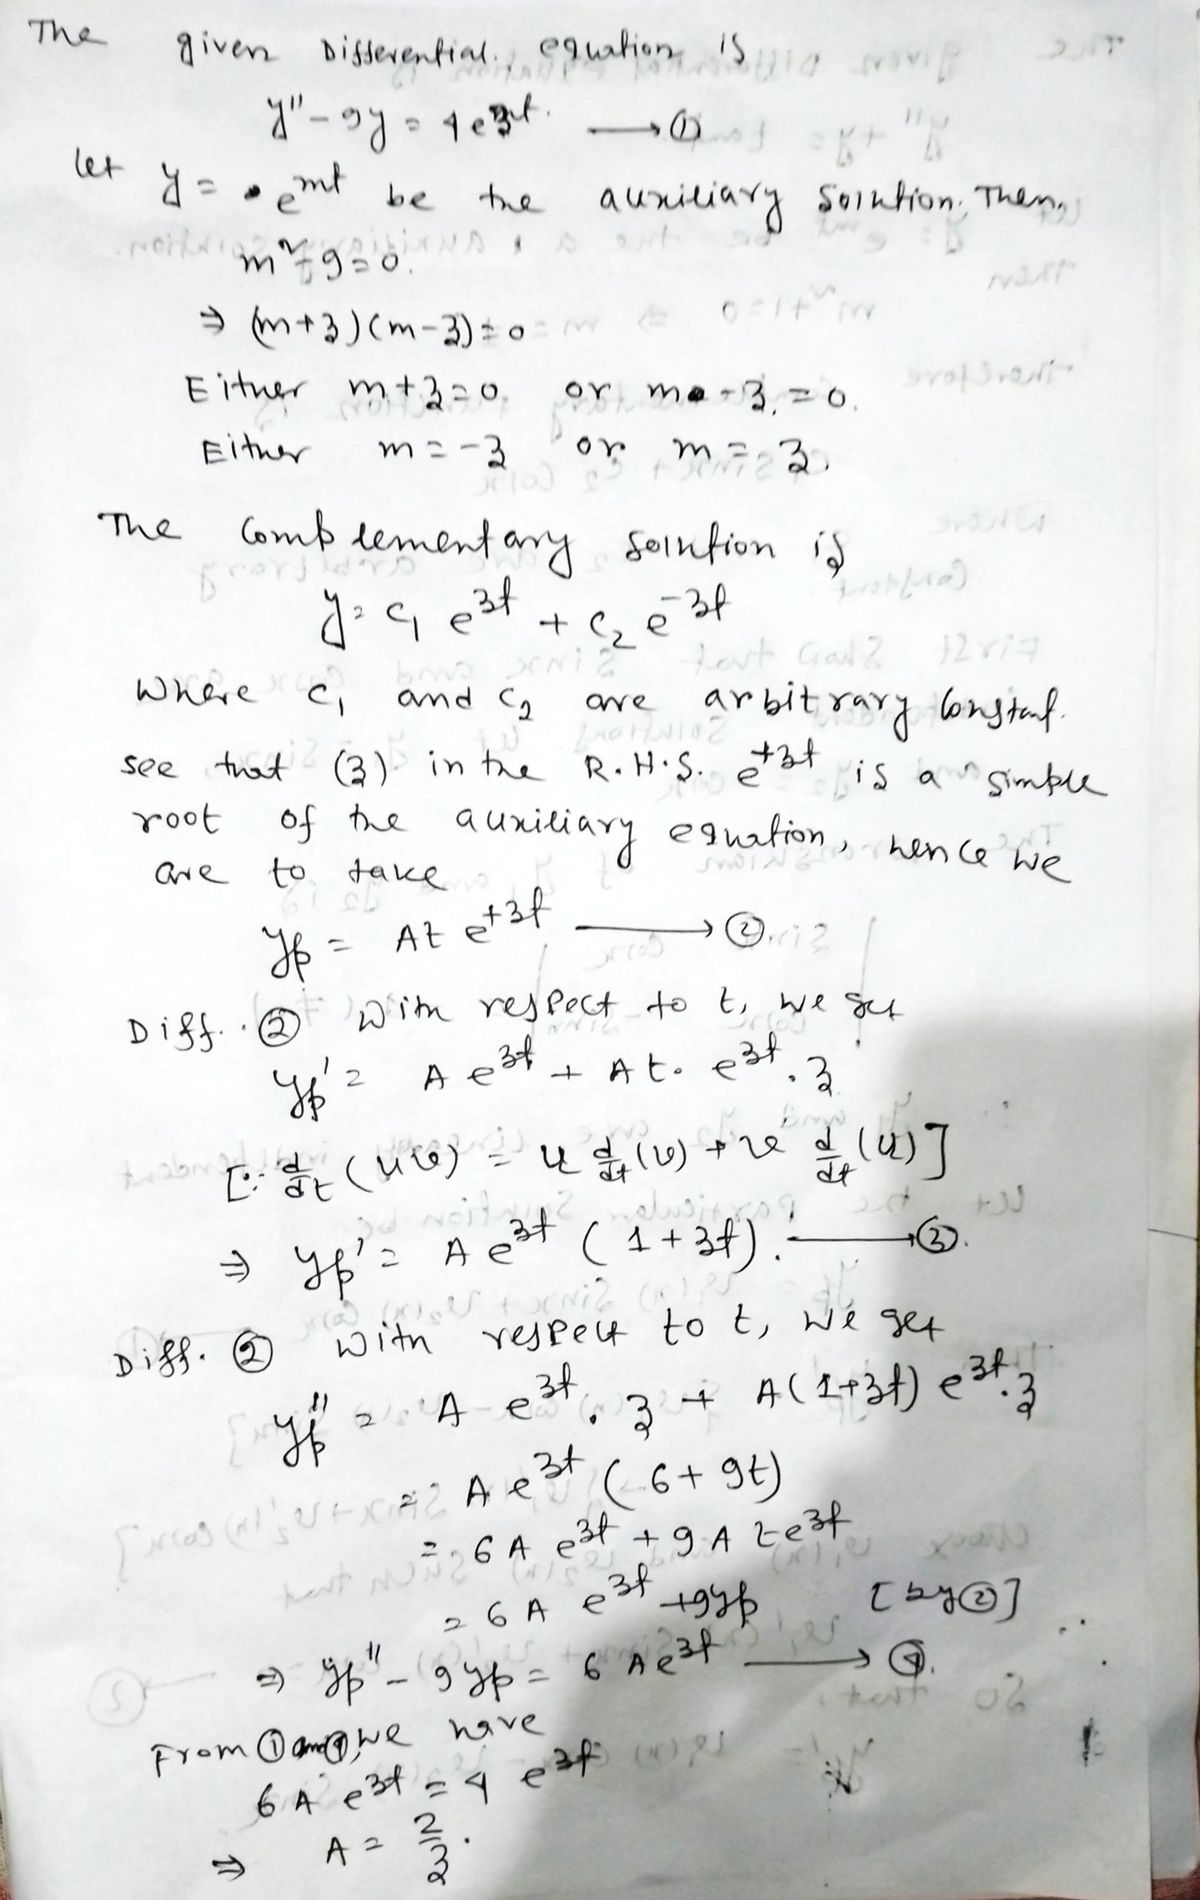 The given Differential. equation is
y'' - 9y = 4e^{3t}. ⟶ ①
let y = e^{mt} be the auxiliary solution. Then,
m² - 9 = 0.
⇒ (m+3)(m-3) = 0
Either m+3=0 or m-3=0.
Either m=-3 or m=3.
The Complementary solution is
y = c₁ e^{3t} + c₂ e^{-3t}
Where c₁ and c₂ are arbitrary Constant.
see that (3) in the R.H.S. e^{+3t} is a simple
root of the auxiliary equation, hence we
are to take
yp = At e^{+3t} ⟶ ②.
Diff. ② With respect to t, we get
yp' = A e^{3t} + At. e^{3t}.3
[∵ d/dt (uv) = u d/dt (v) + v d/dt (u)]
⇒ yp' = A e^{3t} (1+3t). ⟶ ③.
Diff. ② With respect to t, we get
yp'' = A e^{3t}.3 + A(1+3t) e^{3t}.3
= A e^{3t} (6+9t)
= 6A e^{3t} + 9A t e^{3t}
= 6A e^{3t} + 9yp [by ②]
⇒ yp'' - 9yp = 6 A e^{3t} ⟶ ④.
From ① and ④, we have
6A e^{3t} = 4 e^{3t}
⇒ A = 2/3.